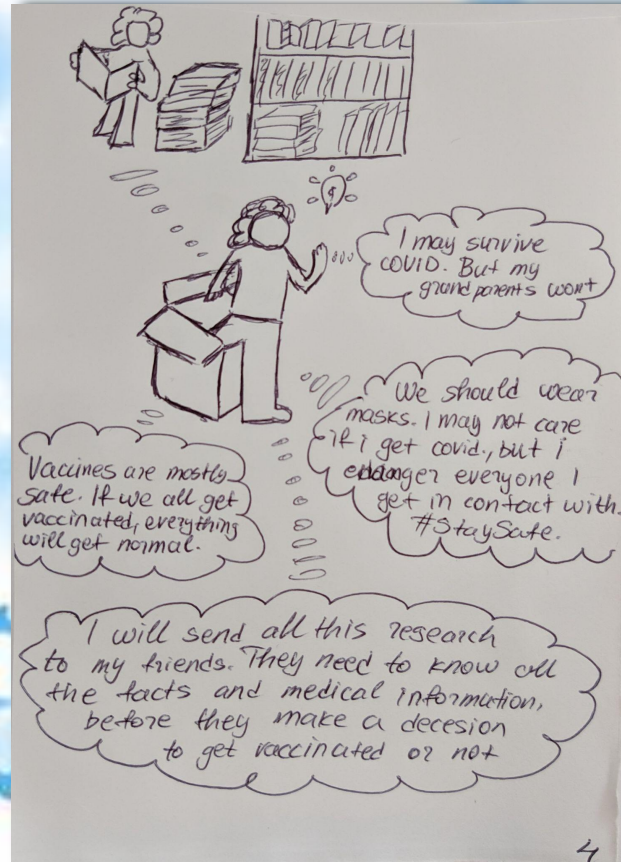 I may survive
COVID. But my
grandparents wont
We should wear
masks. I may not care
if i get covid., but i
endanger everyone I
get in contact with.
#StaySafe.
Vaccines are mostly
safe. If we all get
vaccinated, everything
will get normal.
I will send all this research
to my friends. They need to know all
the facts and medical information,
before they make a decesion
to get vaccinated or not
4